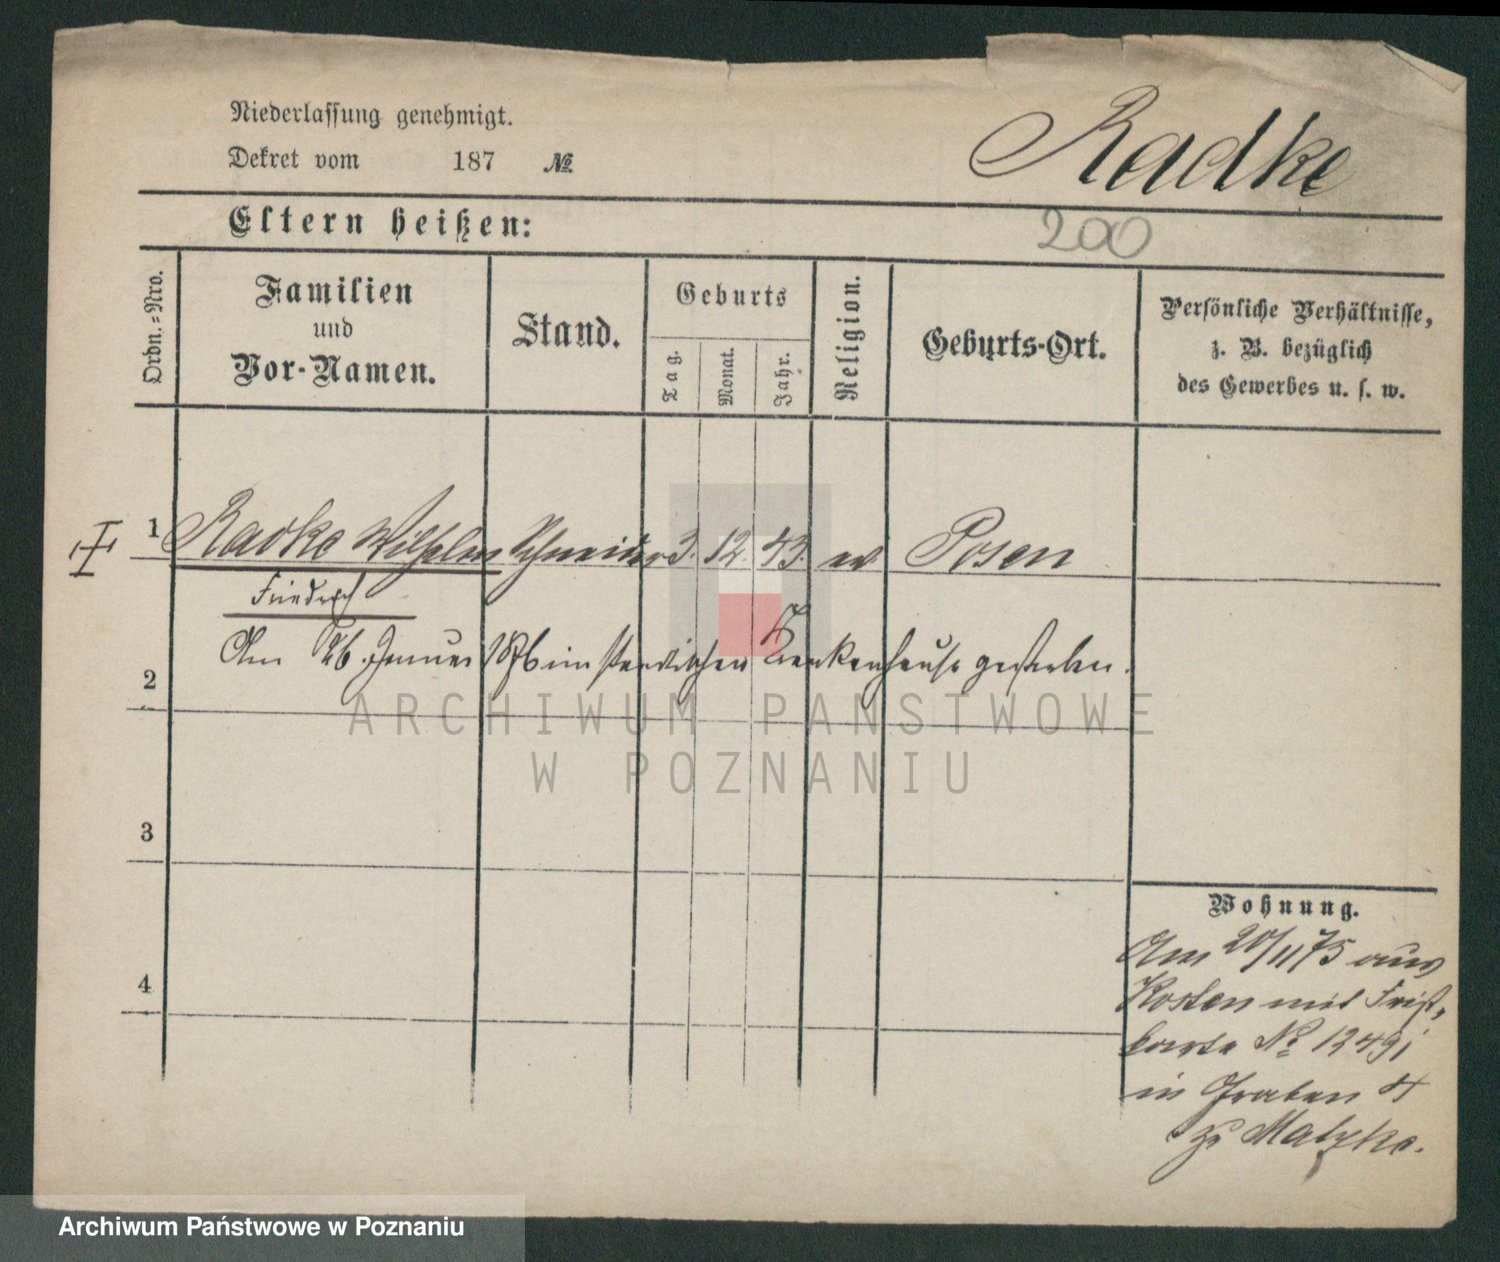 Niederlassung genehmigt.
Dekret vom 187 №
Radke
Eltern heißen:
200
Ordn.-Nro.
Familien
und
Vor-Namen.
Stand.
Geburts
Tag.
Monat.
Jahr.
Religion.
Geburts-Ort.
Persönliche Verhältnisse,
z. B. bezüglich
des Gewerbes u. s. w.
1 Radke Wilhelm Schneider 3. 12. 43. ev Posen
Friedrich
Am 26. Januar 1876 im städtischen Krankenhause gestorben.
2
ARCHIWUM PAŃSTWOWE
W POZNANIU
3
4
Wohnung.
Am 20/11 75 aus
Kosten mit Frist-
karte № 12491
in Graben 4
zu Matzke.
Archiwum Państwowe w Poznaniu